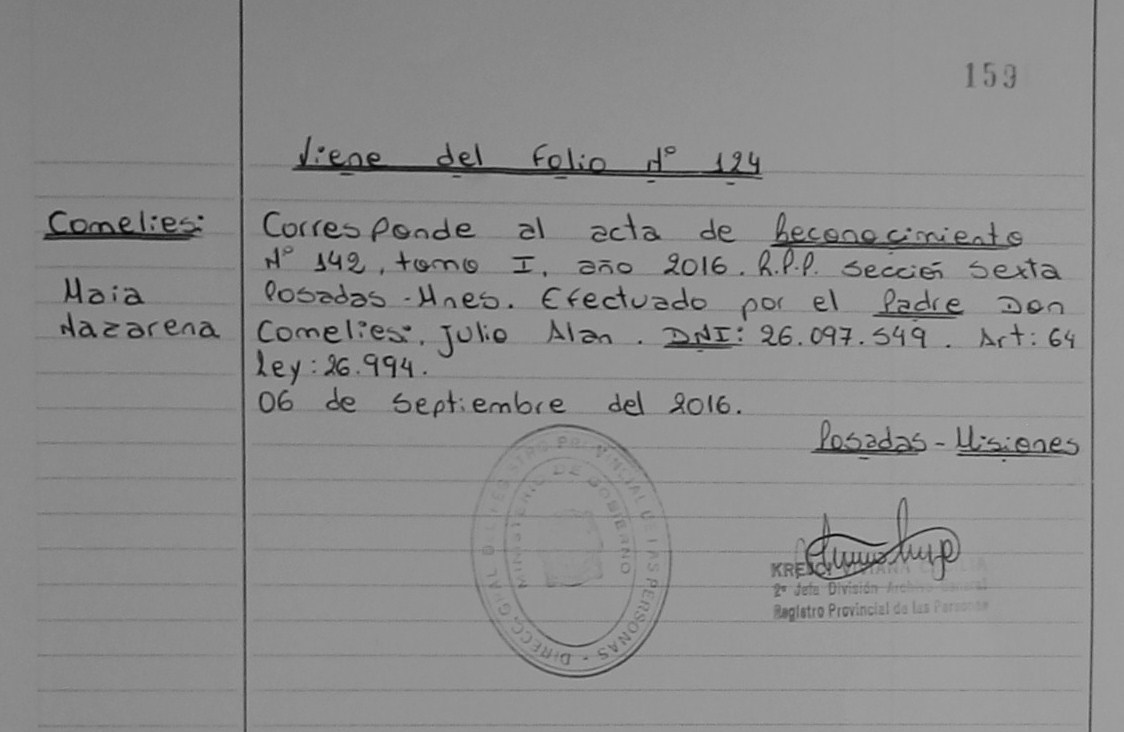 159
Viene del Folio Nº 124
Comelies:
Corresponde al acta de Reconocimiento
Nº 142, tomo I, año 2016. R.P.P. sección sexta
Maia
Posadas - Mnes. Efectuado por el Padre Don
Nazarena
Comelies, Julio Alan. DNI: 26.097.549. Art: 64
Ley: 26.994.
06 de Septiembre del 2016.
Posadas - Misiones
DIRECC. GRAL DEL REGISTRO PROVINCIAL DE LAS PERSONAS
MINISTERIO DE GOBIERNO
2º Jefa División Archivo General
Registro Provincial de las Personas